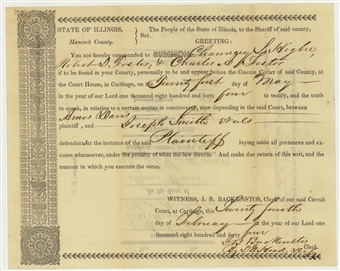 STATE OF ILLINOIS,
Hancock County.
Sct.
The People of the State of Illinois, to the Sheriff of said county,
GREETING:
You are hereby commanded to SUMMON Chauncy L Higbee
Robert D. Foster, & Charles A Foster
if to be found in your County, personally to be and appear before the CIRCUIT COURT of said County, at
the Court House, in Carthage, on Twenty first day of May
in the year of our Lord one thousand eight hundred and forty four to testify, and the truth
to speak, in relation to a certain matter in controversy, now depending in the said Court, between
Amos Davis
plaintiff, and Joseph Smith
defendant at the instance of the said Plaintiff laying aside all pretences and ex-
cuses whatsoever, under the penalty of what the law directs. And make due return of this writ, and the
manner in which you execute the same.
WITNESS, J. B. BACKENSTOS, Clerk of our said Circuit
Court, at Carthage, this Twenty fourth
day of February in the year of our Lord
one thousand eight hundred and forty four
J B Backenstos Clerk